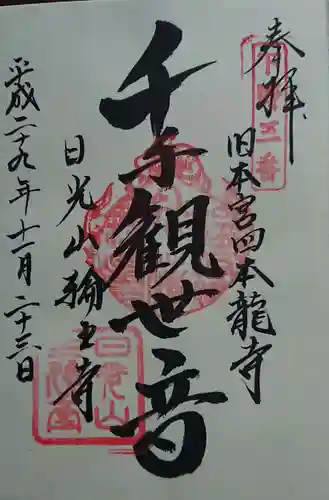 奉拝
旧本宮四本龍寺
千手観世音
日光山輪王寺
平成二十九年十一月二十三日